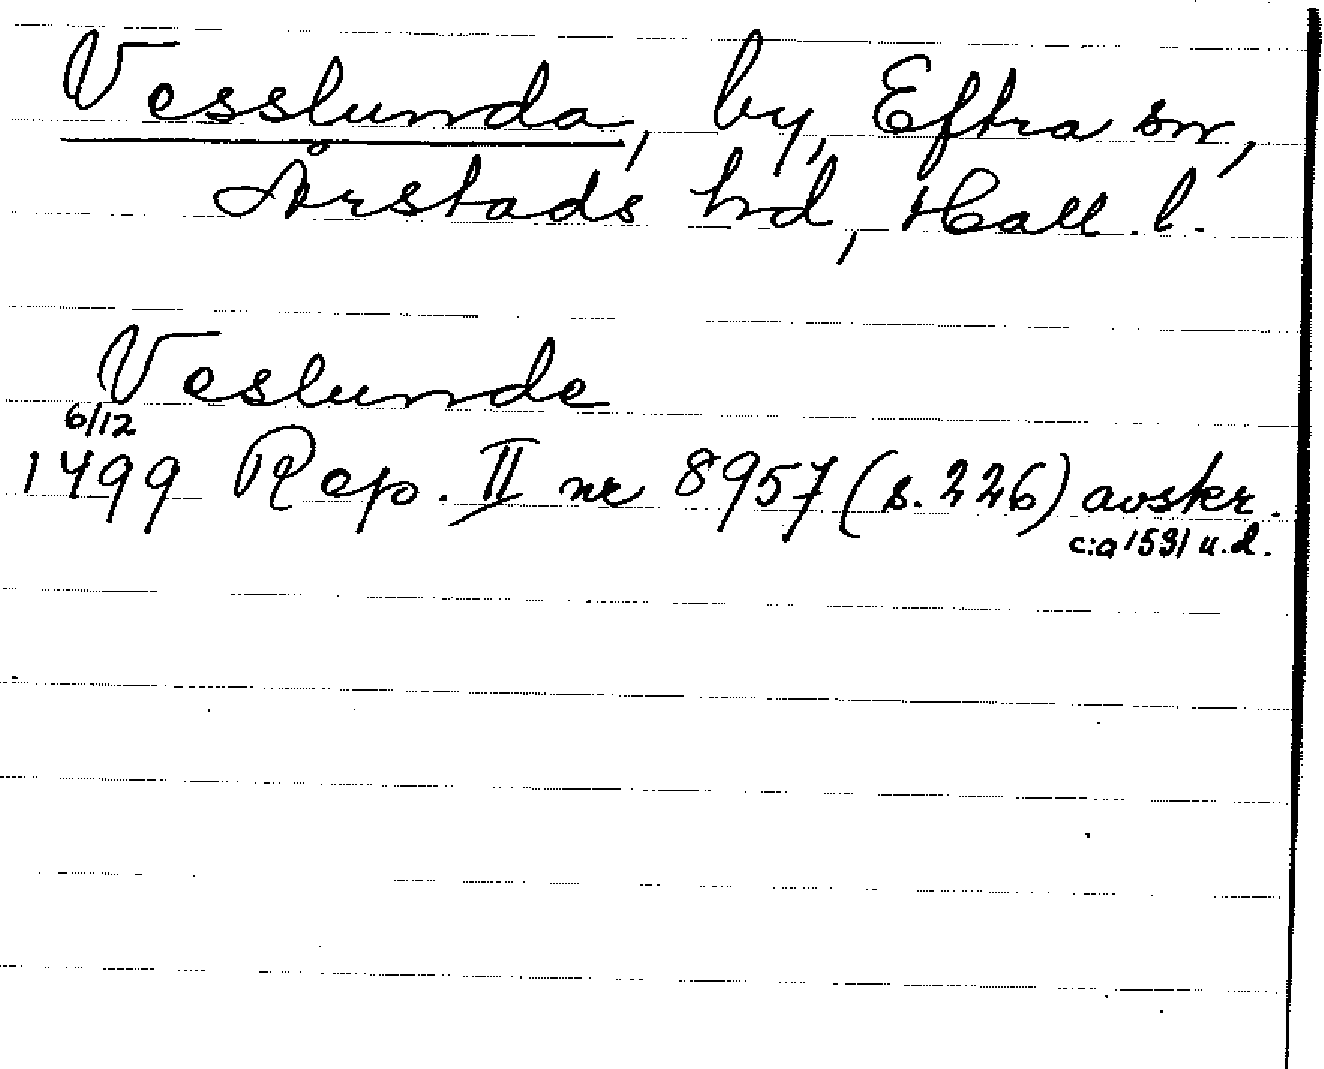 Vesslunda, by, Eftra sn,
Årstads hd, Hall. l.
Veslunde
6/12
1499 Rep. II nr 8957 (s. 226) avskr.
c:a 1591 u.d.